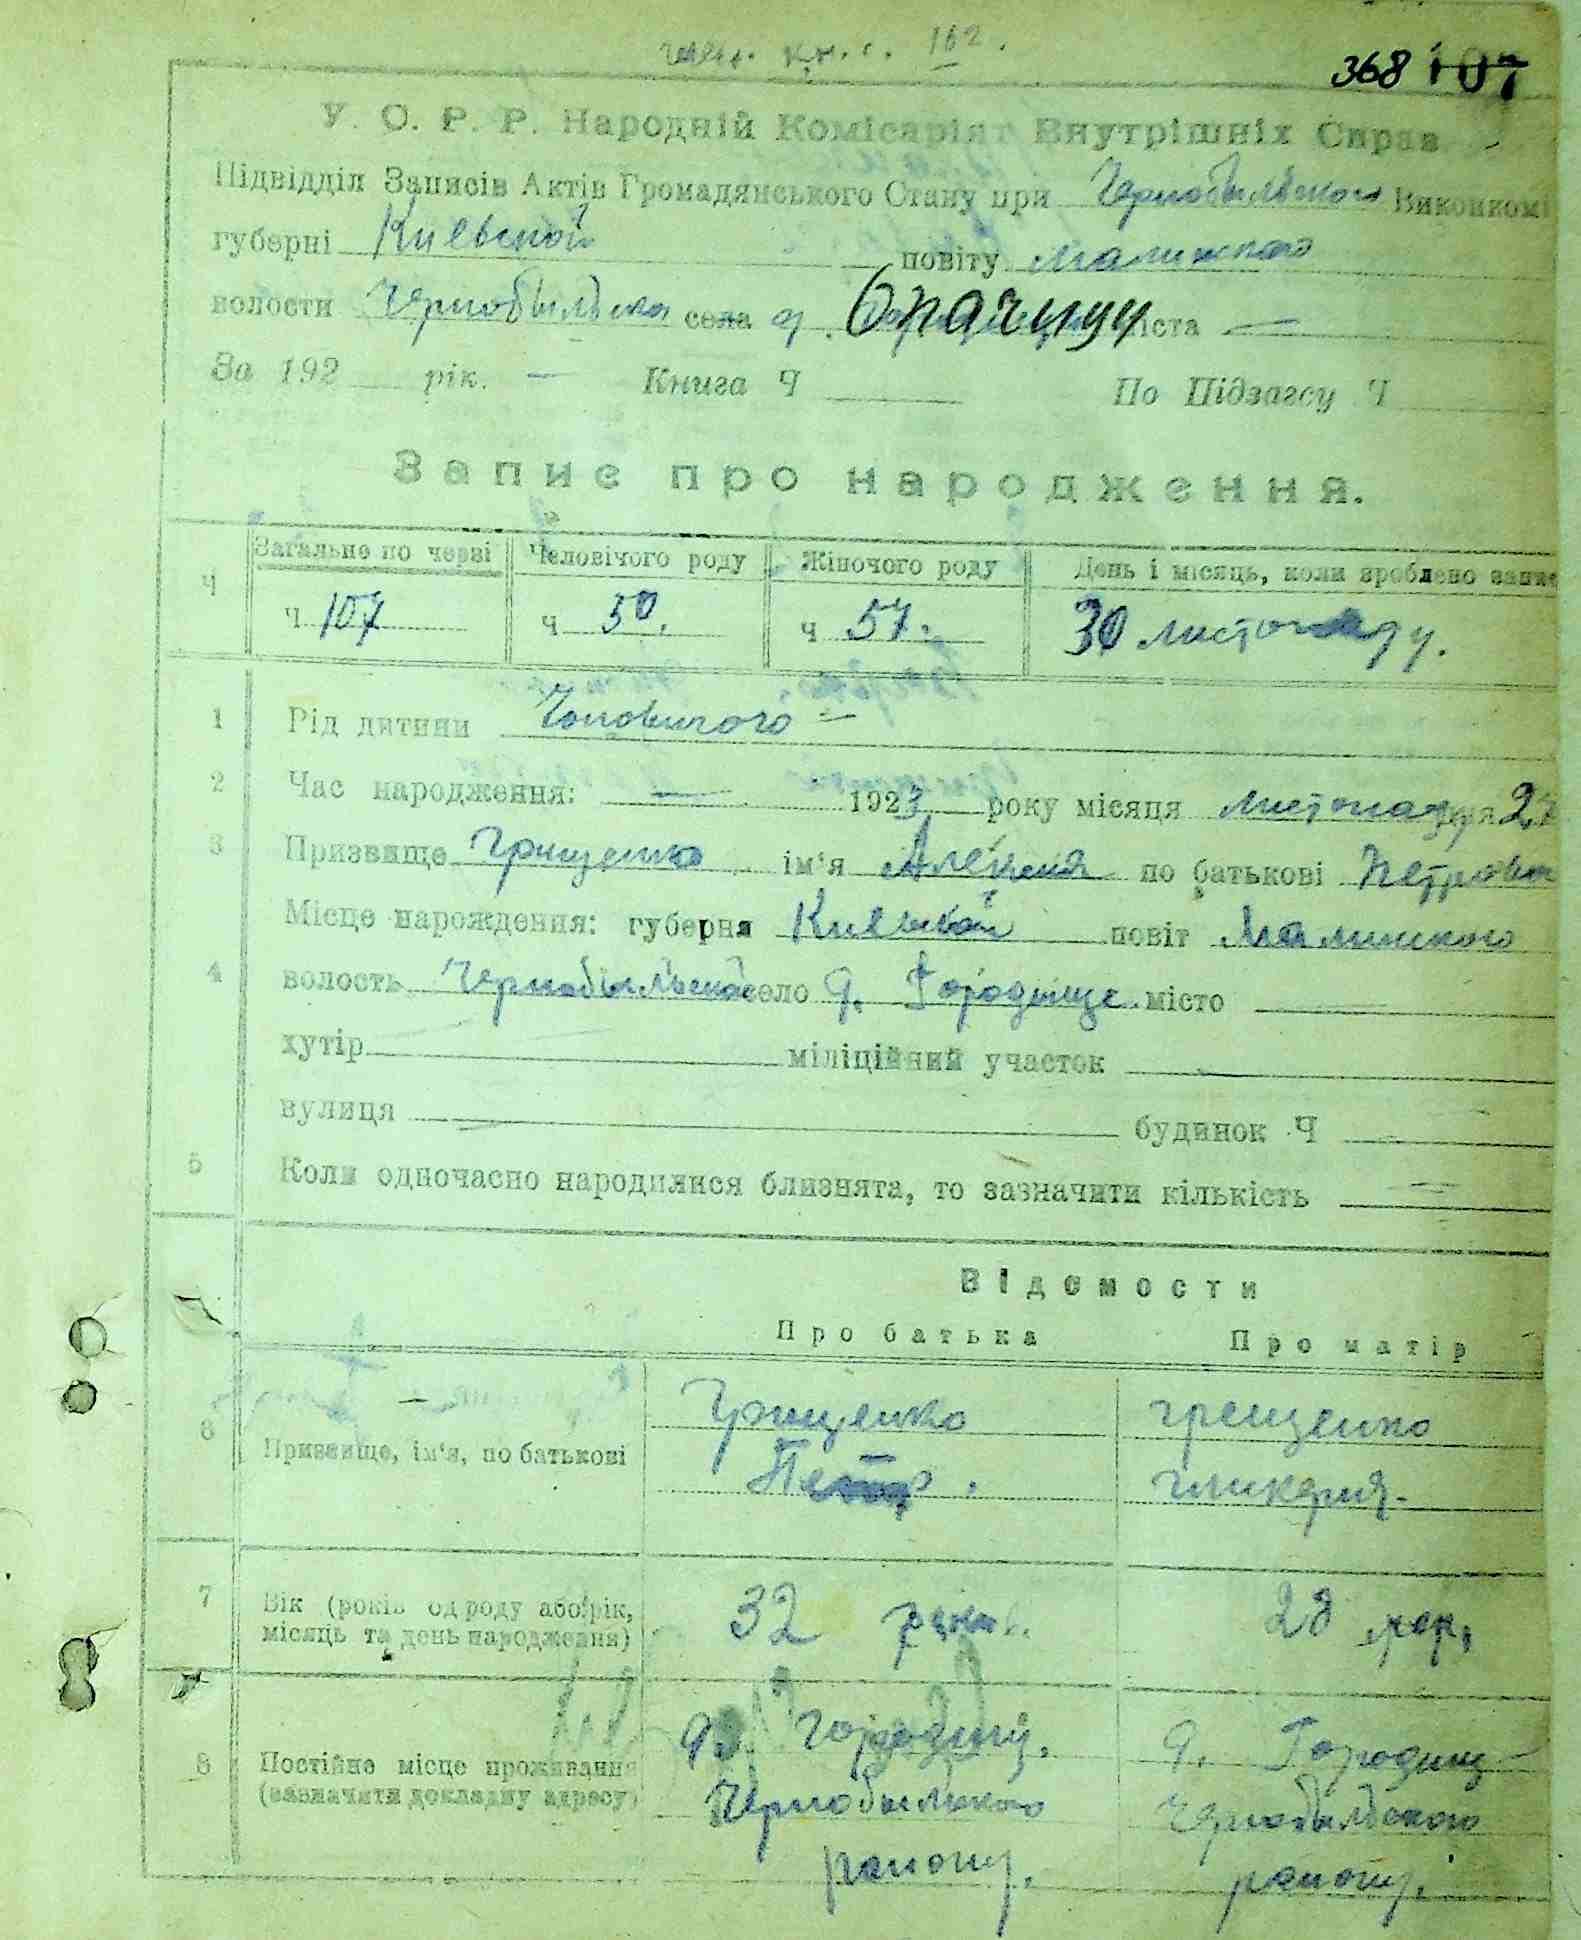 кн. с. 162.
368 107
У. О. Р. Р. Народній Комісаріят Внутрішніх Справ
Підвідділ Записів Актів Громадянського Стану при Чернобыльского Виконкомі
губерні Киевской повіту Малинского
волости Чернобыльска села д. Опачицу міста —
За 192 рік. — Книга Ч По Підзагсу Ч
Запис про народження.
Ч Загальне по черві Человічого роду Жіночого роду День і місяць, коли зроблено запис
Ч 107 Ч 50. Ч 57. 30 листопаду.
1 Рід дитини Чоловичого —
2 Час народження: — 1923 року місяця листопаду дня 27
3 Призвище Грищенко ім'я по батькові Петрови
Місце нарождения: губерня Киевской повіт Малинского
4 волость Чернобильска село д. Городище місто
хутір міліційний участок
вулиця будинок Ч
5 Коли одночасно народилися близнята, то зазначити кількість —
Відомости
Про батька Про матір
6 Призвище, ім'я, по батькові Грищенко Грещенко
Петр. Гликерия.
7 Вік (років од роду або рік, місяць та день народження) 32
8 Постійне місце проживання (зазначити докладну адресу) д. Городищ. д. Городищ
Чернобыльского Чернобыльского
району. району.